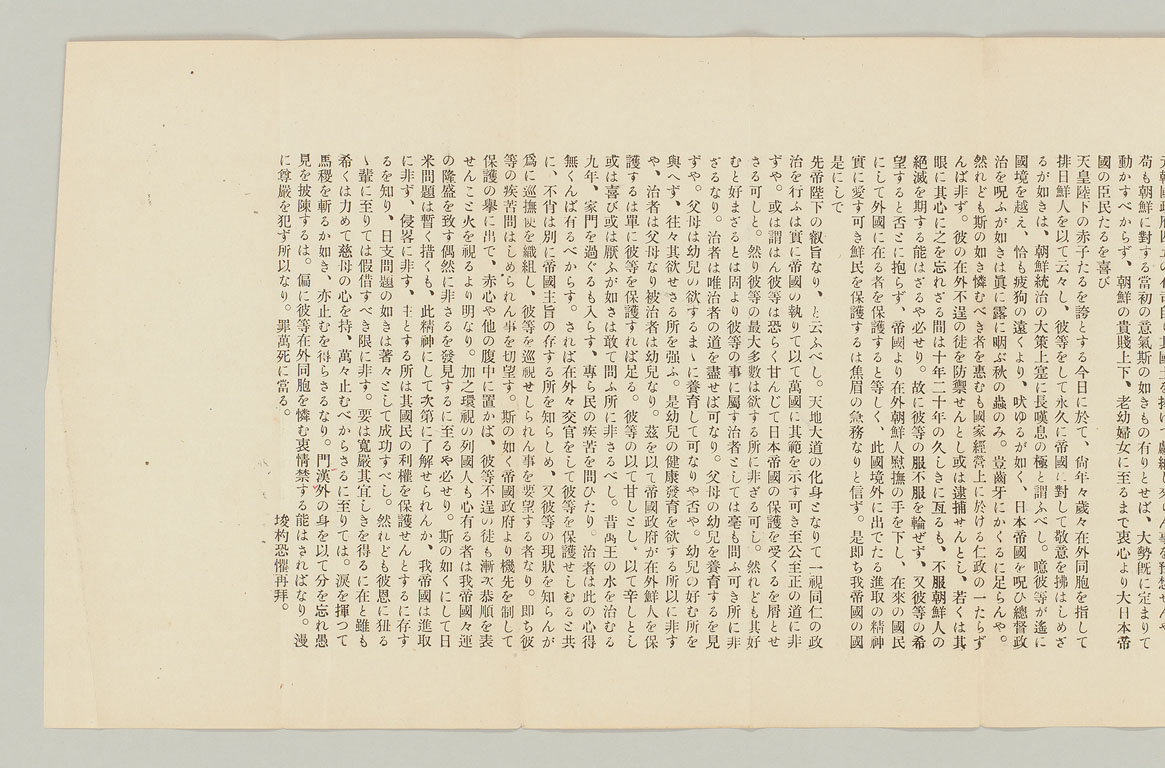 苟も朝鮮に對する當初の意氣斯の如きもの有りとせば、大勢既に定まりて
動かすべからず、朝鮮の貴賤上下、老幼婦女に至るまで衷心より大日本帝
國の臣民たるを喜び
天皇陛下の赤子たるを誇とする今日に於て、尙年々歲々在外同胞を指して
排日鮮人を以て云々し、彼等をして永久に帝國に對して敬意を拂はしめざ
るが如きは、朝鮮統治の大策上寔に長嘆息の極と謂ふべし。噫彼等が遙に
國境を越え、恰も疲狗の遠くより、吠ゆるが如く、日本帝國を呪ひ總督政
治を呪ふが如きは眞に露に咽ぶ秋の蟲のみ。豈齒牙にかくるに足らんや。
然れども斯の如き憐むべき者を惠むも國家經營上に於ける仁政の一たらず
んば非ず。彼の在外不逞の徒を防禦せんとし或は逮捕せんとし、若くは其
眼に其心に之を忘れざる間は十年二十年の久しきに亙るも、不服朝鮮人の
絕滅を期する能はざるや必せり。故に彼等の服不服を輪ぜず、又彼等の希
望すると否とに拘らず、帝國より在外朝鮮人慰撫の手を下し、在來の國民
にして外國に在る者を保護すると等しく、此國境外に出でたる進取の精神
實に愛す可き鮮民を保護するは焦眉の急務なりと信ず。是即ち我帝國の國
是にして
先帝陛下の叡旨なり、と云ふべし。天地大道の化身となりて一視同仁の政
治を行ふは實に帝國の執りて以て萬國に其範を示す可き至公至正の道に非
ずや。或は謂はん彼等は恐らく甘んじて日本帝國の保護を受くるを屑とせ
さる可しと。然り彼等の最大多數は欲する所に非ざる可し。然れども其好
むと好まざるとは固より彼等の事に屬す治者としては毫も問ふ可き所に非
ざるなり。治者は唯治者の道を盡せば可なり。父母の幼兒を養育するを見
ずや。父母は幼兒の欲するまゝに養育して可なりや否や。幼兒の好む所を
與へず、往々其欲せさる所を强ふ。是幼兒の健康發育を欲する所以に非す
や、治者は父母なり被治者は幼兒なり。茲を以て帝國政府が在外鮮人を保
護するは單に彼等を保護すれば足る。彼等の以て甘しとし、以て辛しとし
或は喜び或は厭ふが如さは敢て問ふ所に非さるべし。昔禹王の水を治むる
九年、家門を過ぐるも入らす、專ら民の疾苦を問ひたり。治者は此の心得
無くんば有るべからす。されば在外々交官をして彼等を保護せしむると共
に、不肖は別に帝國主旨の存する所を知らしめ、又彼等の現狀を知らんが
爲に巡撫使を織組し、彼等を巡視せしられん事を要望する者なり。即ち彼
等の疾苦問はしめられん事を切望す。斯の如く帝國政府より機先を制して
保護の擧に出で、赤心や他の腹中に置かば、彼等不逞の徒も漸次恭順を表
せんこと火を視るより明なり。加之環視の列國人も心有る者は我帝國々運
の隆盛を致す偶然に非さるを發見するに至るや必せり。斯の如くにして日
米問題は暫く措くも、此精神にして次第に了解せられんか、我帝國は進取
に非ず、侵畧に非す、主とする所は其國民の利權を保護せんとするに存す
るを知り、日支問題の如きは著々として成功すべし。然れども彼恩に狃る
ゝ輩に至りては假借すべき限に非す。要は寬嚴其宜しきを得るに在と雖も
希くは力めて慈母の心を持、萬々止むべからさるに至りては。淚を揮つて
馬稷を斬るか如き、亦止むを得らさるなり。門漢外の身を以て分を忘れ愚
見を披陳するは。偏に彼等在外同胞を憐む衷情禁する能はさればなり。漫
に尊嚴を犯ず所以なり。罪萬死に當る。
埈杓恐懼再拜。